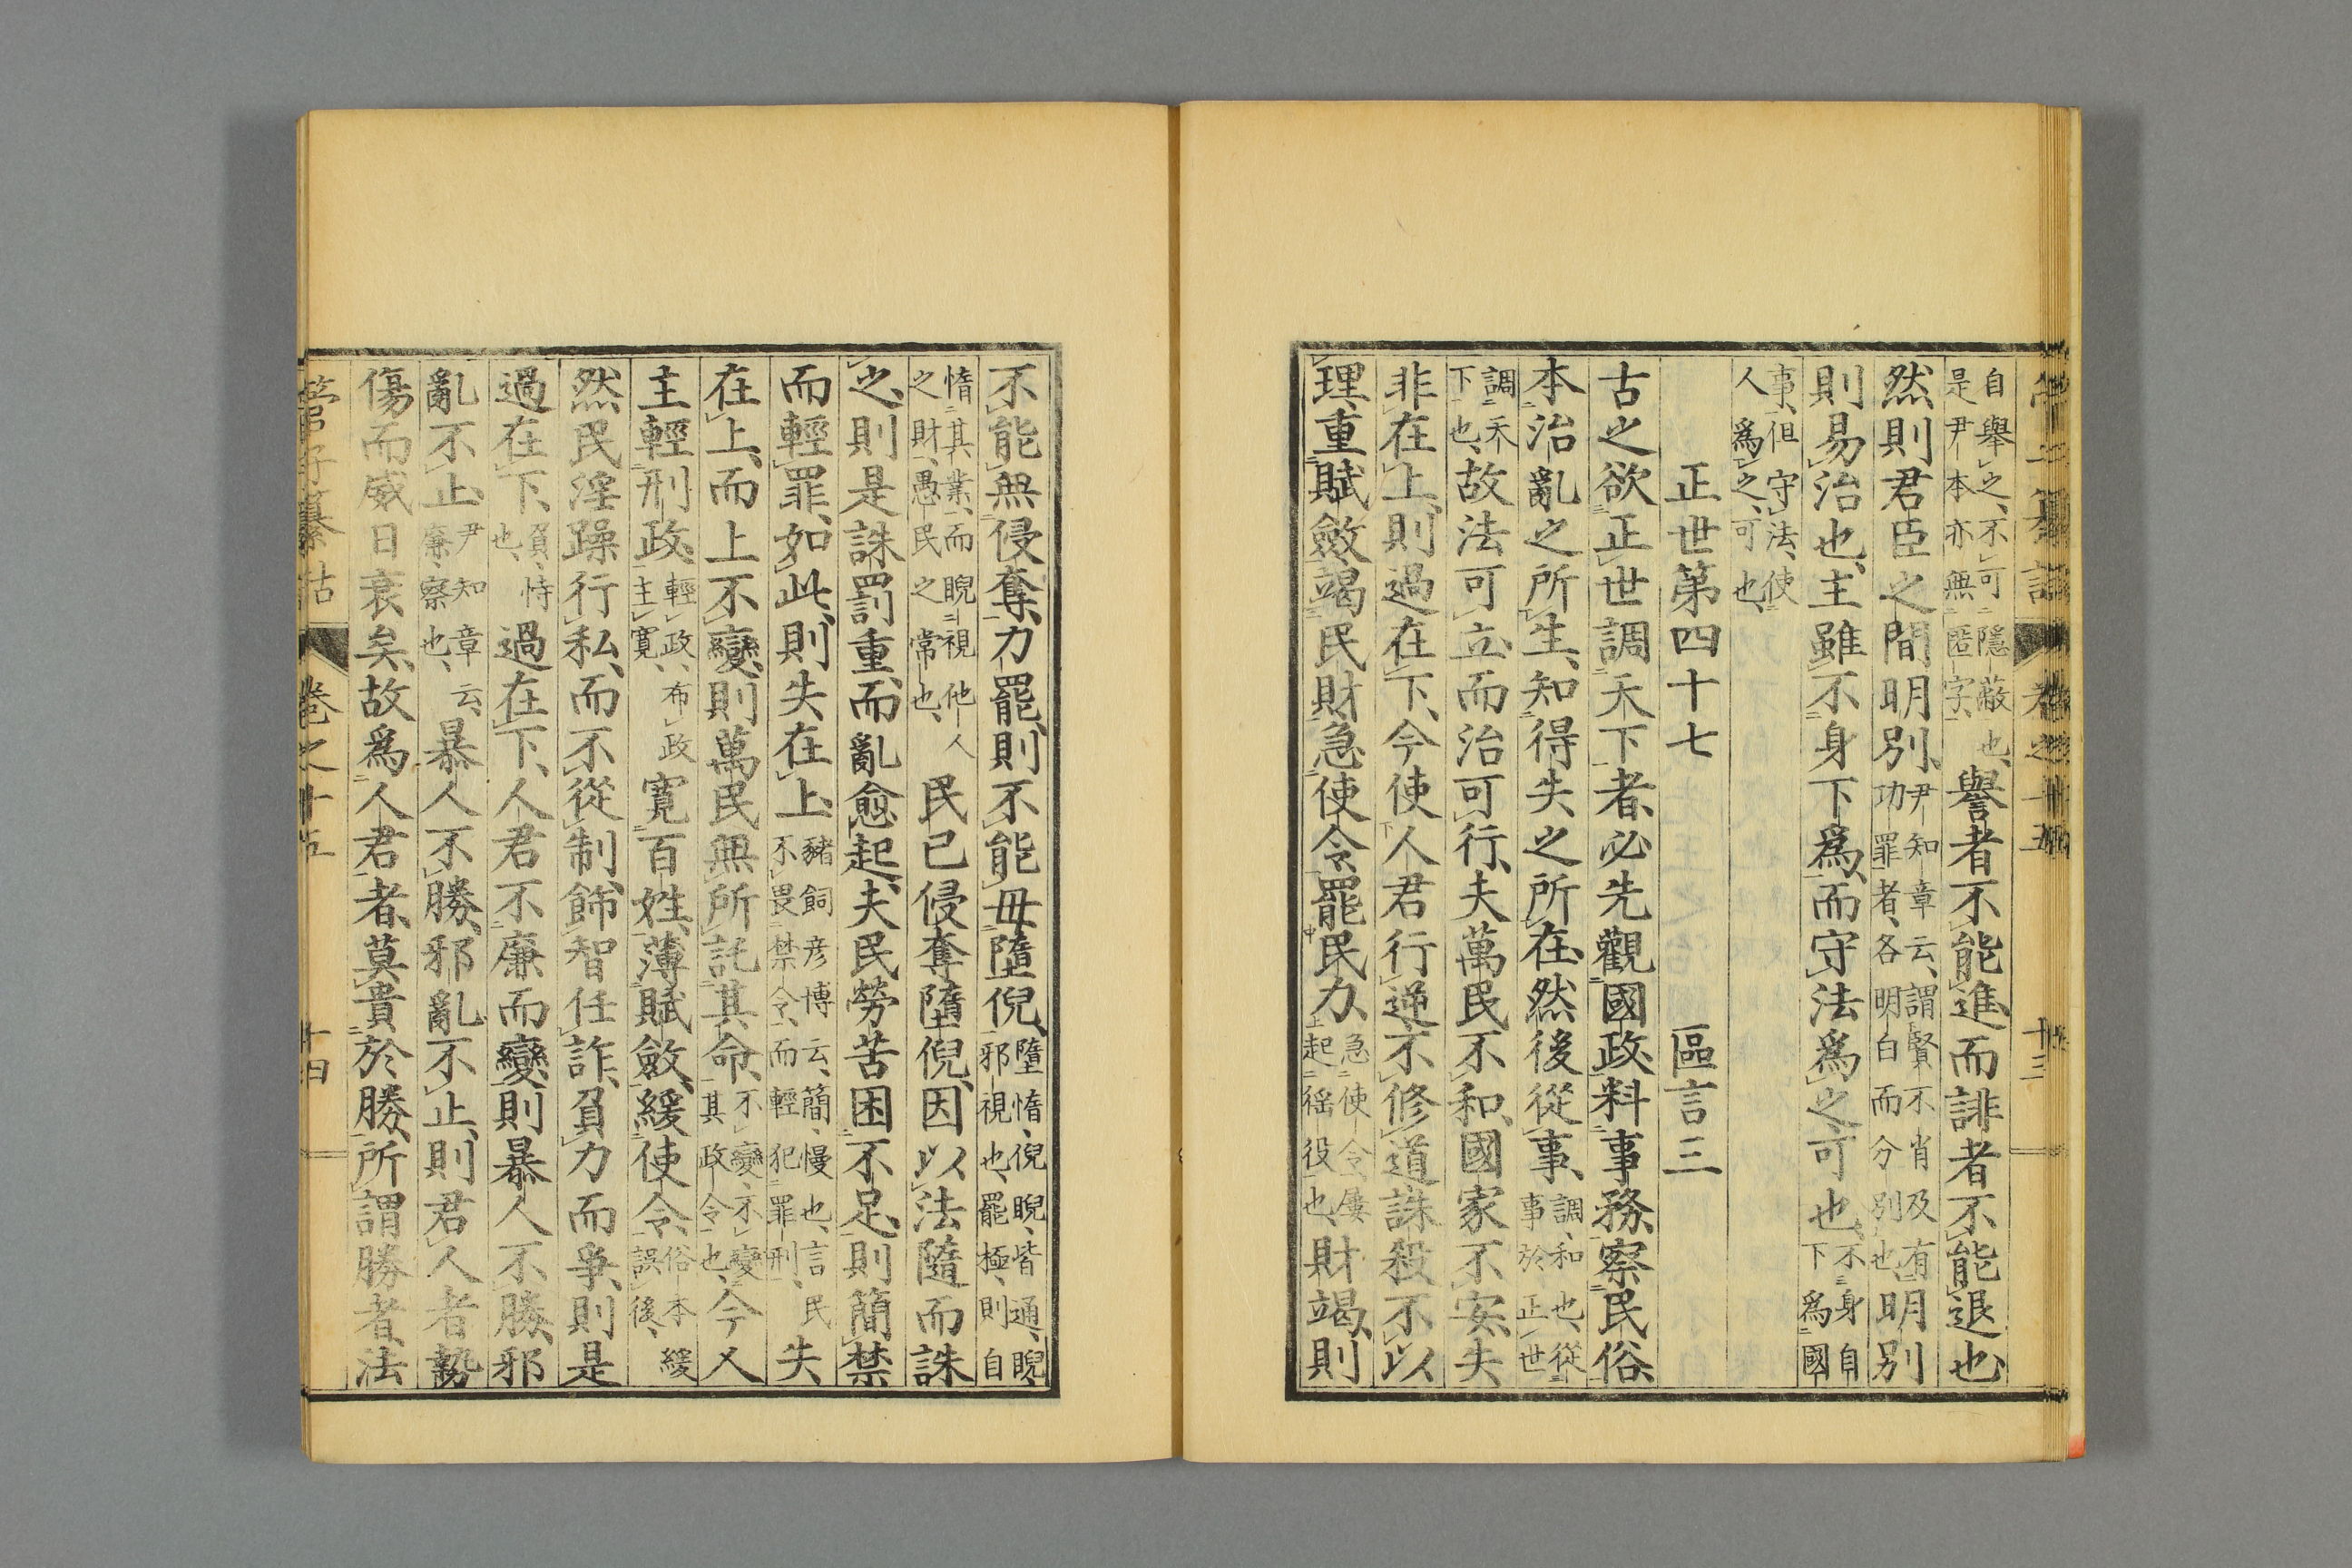 自舉之、不可隱蔽也、
是尹本亦無匿字、
譽者不能進、而誹者不能退也、
然則君臣之間明別、
尹知章云、謂賢不肖及有
功罪者、各明白而分別也、
明別
則易治也、主雖不身下爲、而守法爲之可也、
不身自
下爲國
事、但守法、使
人爲之、可也、
正世第四十七 區言三
古之欲正世調天下者、必先觀國政、料事務、察民俗、
本治亂之所生、知得失之所在、然後從事、
調、和也、從
事於正世
調天
下也、
故法可立、而治可行、夫萬民不和、國家不安、失
非在上、則過在下、今使人君行逆不修道、誅殺不以
理、重賦斂、竭民財、急使令、罷民力、
急使令、屢
起徭役也、
財竭、則
不能無侵奪、力罷、則不能毋墮倪、
墮惰、倪睨、皆通、睨、
邪視也、罷極、則自
惰其業、而睨視他人
之財、愚民之常也、
民已侵奪墮倪、因以法隨而誅
之、則是誅罰重、而亂愈起、夫民勞苦困不足、則簡禁
而輕罪、如此、則失在上、
豬飼彥博云、簡、慢也、言民
不畏禁令、而輕犯罪刑、
失
在上、而上不變、則萬民無所託其命、
不變、不變
其政令也、
今人
主輕刑政、
輕政、布政
主寬、
寬百姓、薄賦斂、緩使令、
俗本緩
誤後、
然民淫躁行私、而不從制、飾智任詐、負力而爭、則是
過在下、
負、恃
也、
過在下、人君不廉而變、則暴人不勝、邪
亂不止、
尹知章云、
廉、察也、
暴人不勝、邪亂不止、則君人者勢
傷而威日衰矣、故爲人君者、莫貴於勝、所謂勝者、法
管子纂詁 卷之十五 十四